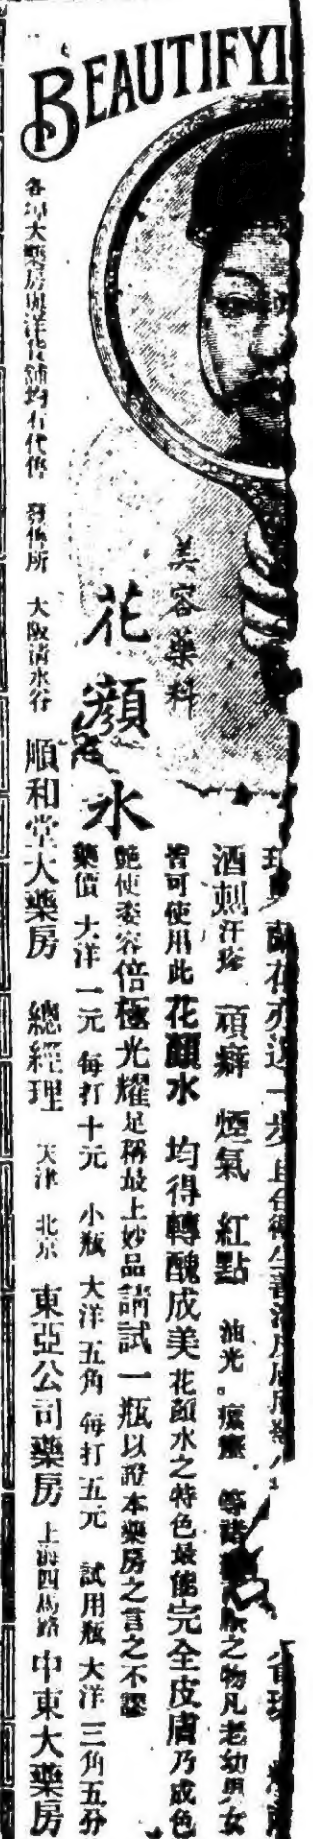 BEAUTIFYI
美容藥料
花顏水
酒刺 汗疹 頑癬 煙氣 紅點 油光 等諸之物凡老幼男女
皆可使用此花顏水 均得轉醜成美花顏水之特色最能完全皮膚乃成色
艷使姿容倍極光耀足稱最上妙品請試一瓶以證本藥房之言之不謬
藥價 大洋一元 每打十元 小瓶 大洋五角 每打五元 試用瓶 大洋三角五分
各埠大藥房與洋貨舖均有代售 發售所 大阪清水谷 順和堂大藥房 總經理 天津 北京 東亞公司藥房 上海四馬路 中東大藥房